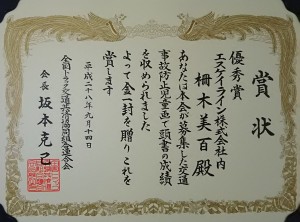 賞状
優秀賞
エスケイライン株式会社内
柵木美百殿
あなたは本会が募集した交通
事故防止児童画で頭書の成績
を収められました
よって金一封を贈りこれを
賞します
平成二十八年九月十四日
全国トラック交通共済協同組合連合会
会長 坂本克己